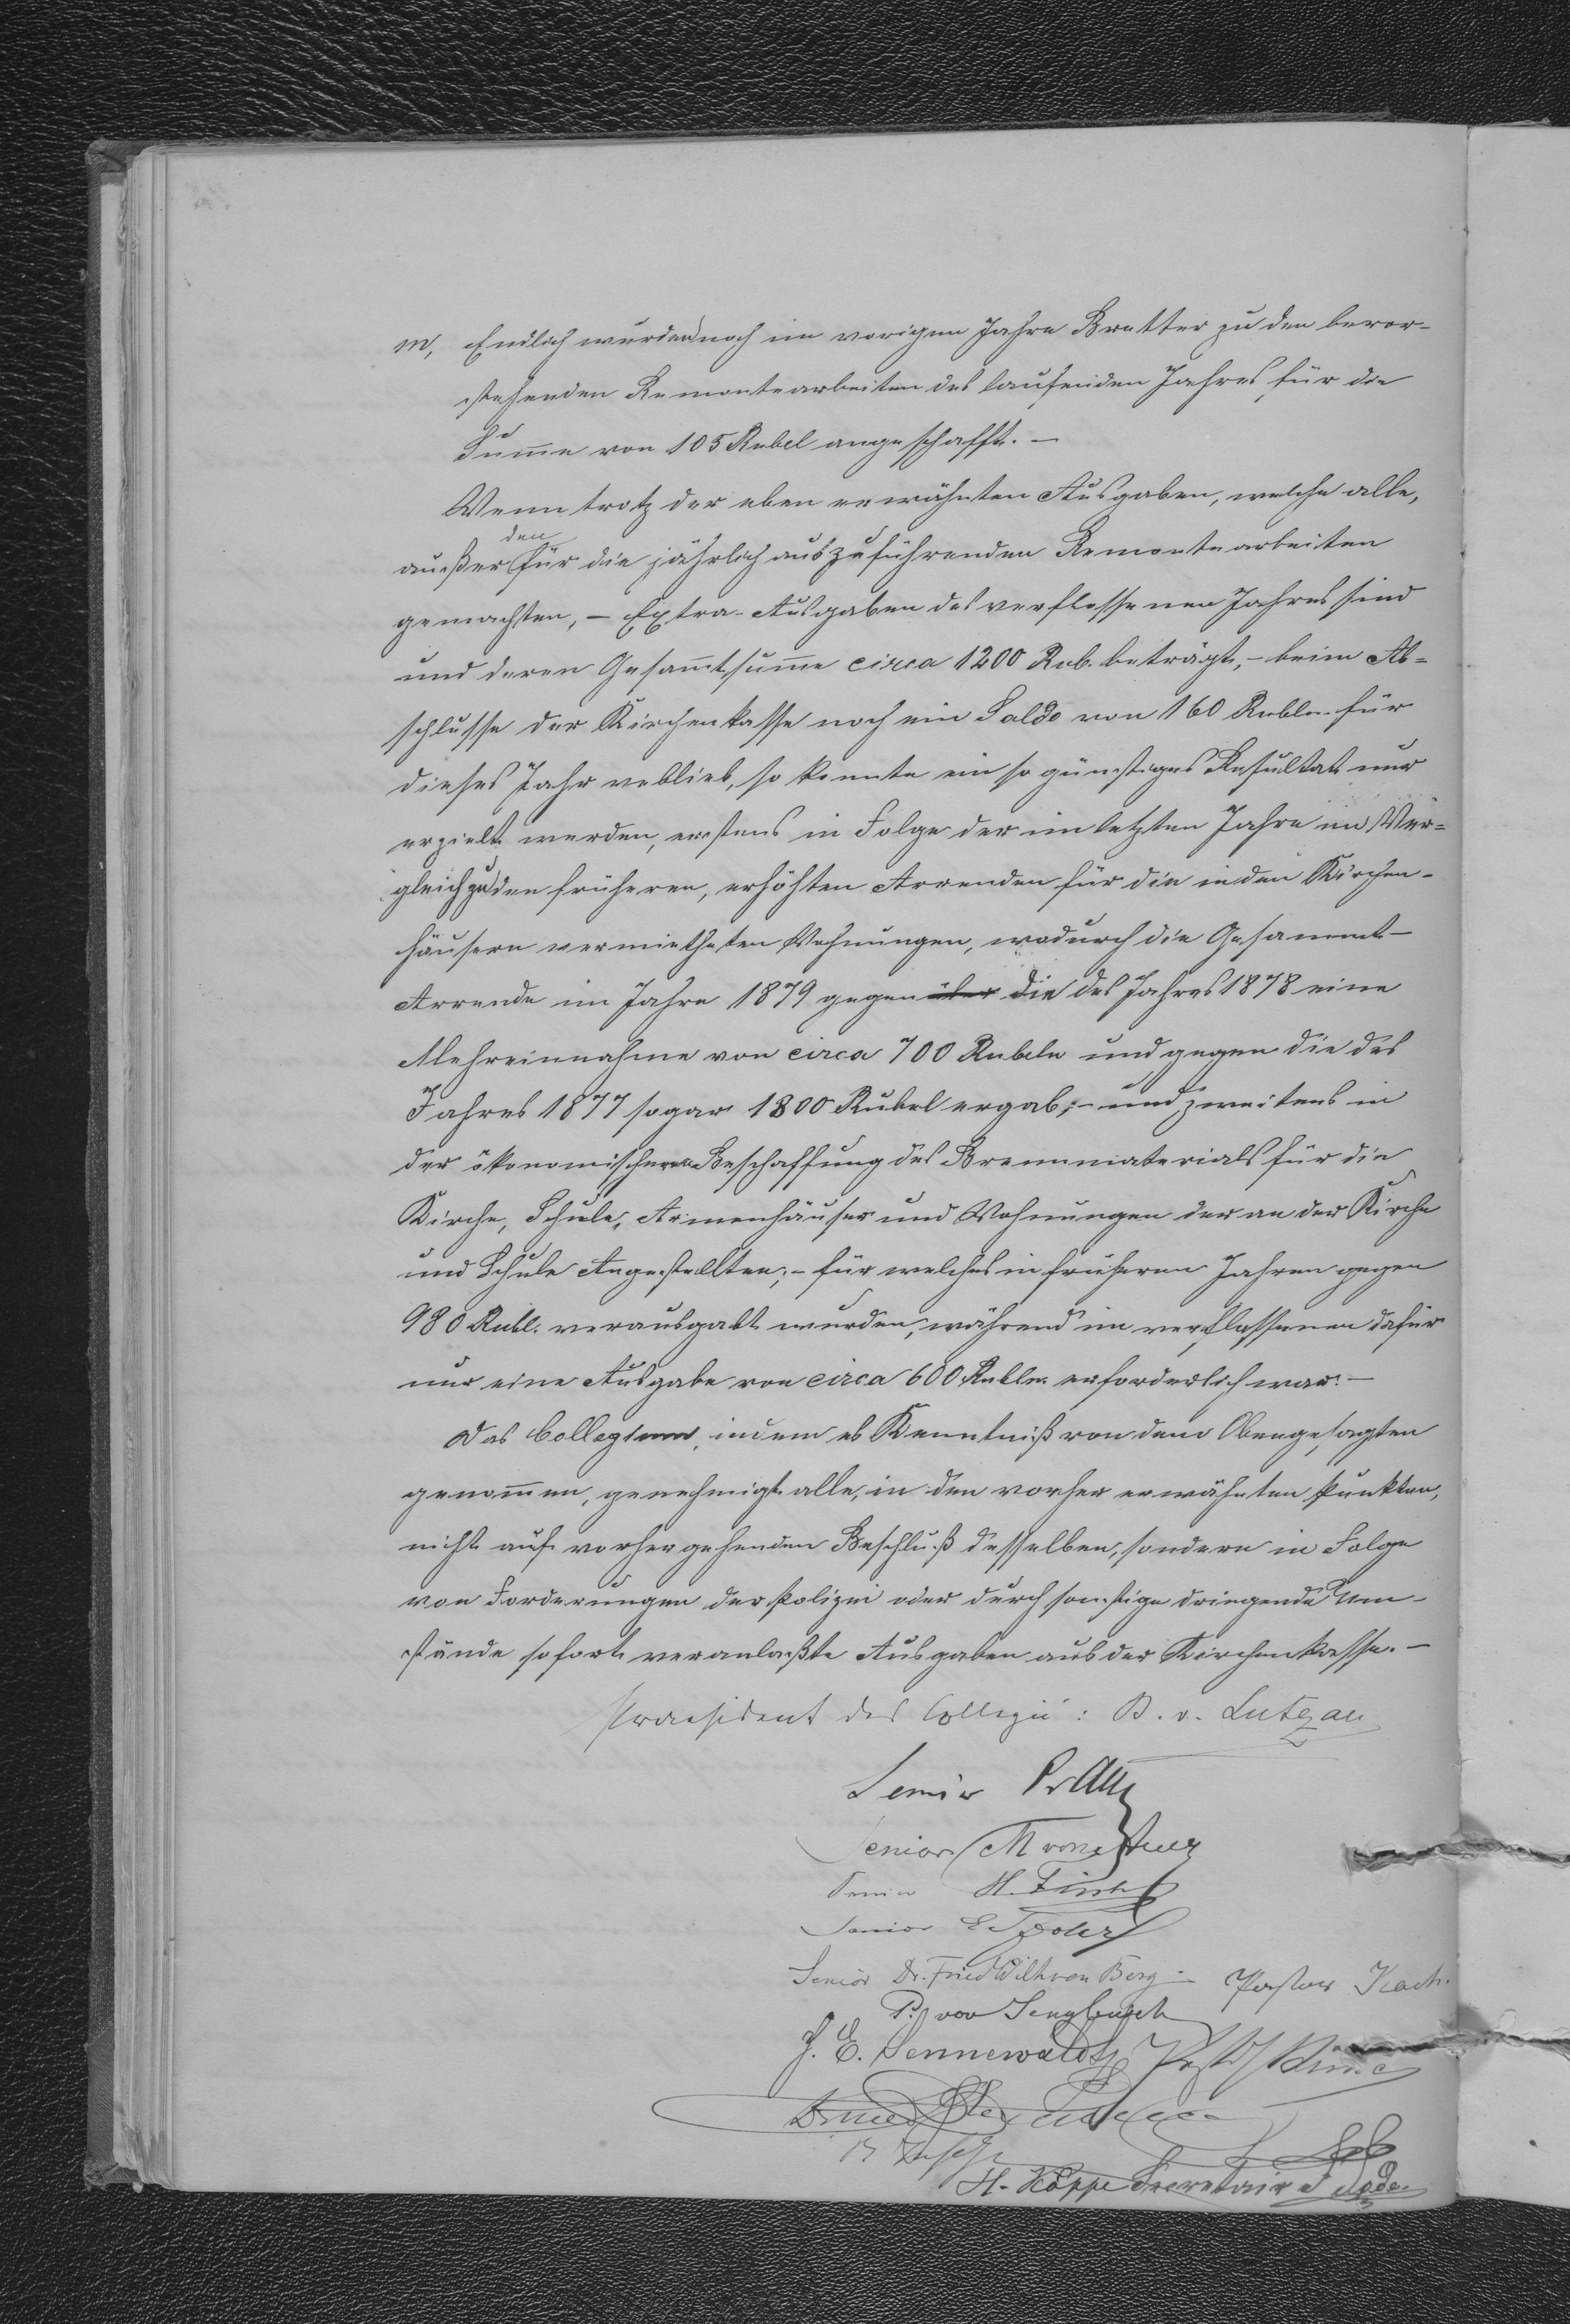 m, Endlich wurden noch im vorigen Jahre Bretter zu den bevor-
stehenden Remontearbeiten des laufenden Jahres für die
Summe von 105 Rubel angeschafft. —
Wenn trotz der eben erwähnten Ausgaben, welche alle,
den
außer für die jährlich auszuführenden Remontearbeiten
gemachten, — Extra-Ausgaben des verflossenen Jahres sind
und deren Gesammtsumme circa 1200 Rub. beträgt, — beim Ab=
schlusse der Kirchenkasse noch ein Saldo von 160 Rubln. für
dieses Jahr verblieb, so konnte ein so günstiges Resultat nur
erzielt werden, erstens in Folge der im letzten Jahre im Ver=
gleich zu den früheren, erhöhten Arrenden für die in den Kirchen-
häusern vermietheten Wohnungen, wodurch die Gesammt-
Arrende im Jahre 1879 gegenüber die des Jahres 1878 eine
Mehreinnahme von circa 700 Rubeln und gegen die des
Jahres 1877 sogar 1800 Rubel ergab; — und zweitens in
der ökonomischeren Beschaffung des Brennmaterials für die
Kirche, Schule, Armenhäuser und Wohnungen der an der Kirche
und Schule Angestellten; — für welches in früheren Jahren gegen
980 Rubl. verausgabt wurden, während im verflossenen dafür
nur eine Ausgabe von circa 600 Rubln. erforderlich war. —
Das Collegium, indem es Kenntniß von dem Obengesagten
genommen, genehmigt alle, in den vorher erwähnten Punkten,
nicht auf vorhergehenden Beschluß desselben, sondern in Folge
von Forderungen der Polizei oder durch sonstige dringende Um-
stände sofort veranlaßte Ausgaben aus der Kirchenkasse. —
Praesident des Collegii: B. v. Lutzau
Senior
Senior M
Senior H.
Senior E
Senior Dr. Fried Wilh von Berg — Pastor Koch.
P. von Sengbusch
J. E. Sennewaldt
H. Koppe Secretair